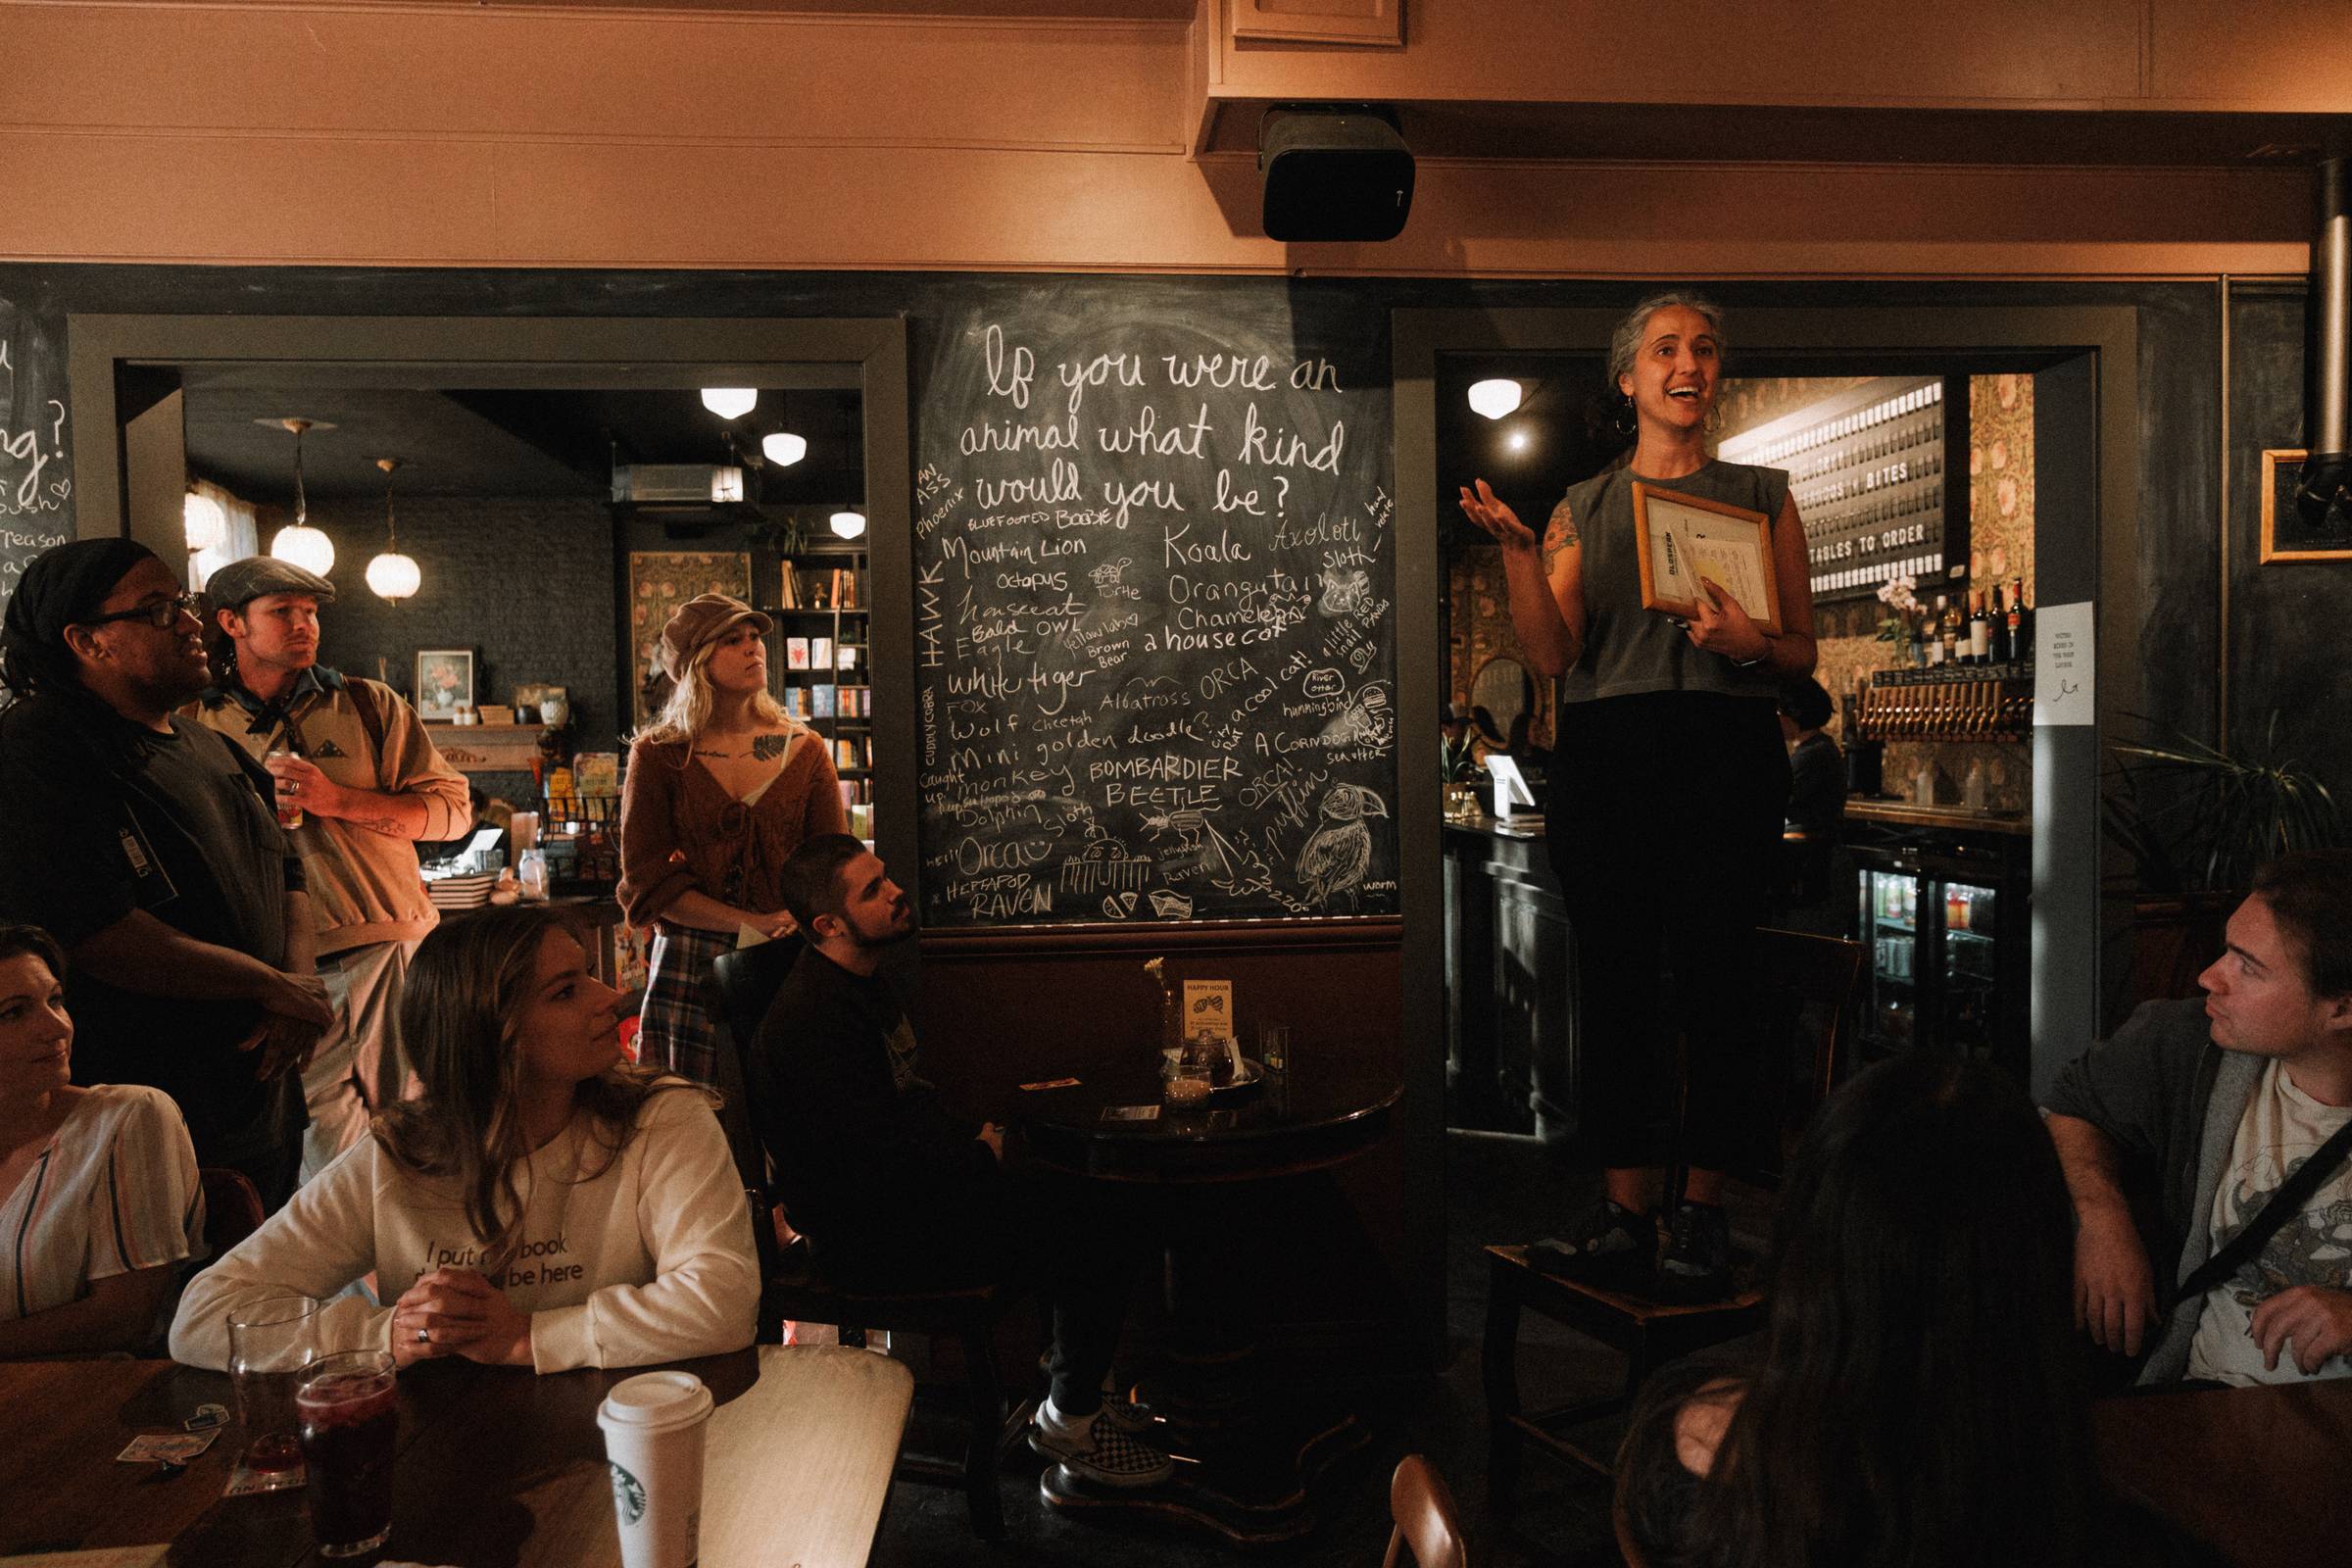 ng?
Treason
If you were an
animal what kind
would you be?
AN
ASS
Phoenix
BLUEFOOTED BOOBIE
Mountain Lion
Koala
Axolotl
Sloth
Octopus
Turtle
Orangutan
HAWK
housecat
Chameleon
RED
PANDA
Bald
Eagle
OWL
Yellow lab
Brown
Bear
a housecat
a little
snail
White tiger
Albatross
ORCA
River
otter
FOX
hummingbird
CUDDLY COBRA
Wolf
Cheetah
a cool cat!
Mini golden doodle?
A CORNDOG
sea otter
Caught
up.
monkey
BOMBARDIER
BEETLE
ORCA!
puffin
Dolphin
Sloth
Orca
jellyfish
HEPTAPOD
RAVEN
Raven
worm
BITES
TABLES TO ORDER
HAPPY HOUR
I put book
be here